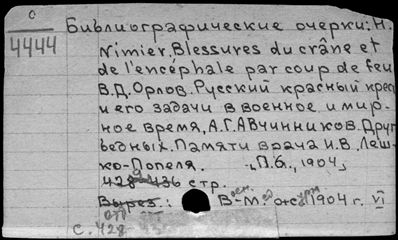 С
4444
Библиографические очерки: H.
Nimier. Blessures du crâne et
de l'encéphale par coup de feu
В.Д. Орлов. Русский красный крест
и его задачи в военное и мир-
ное время, А.Г. Авчинников. Друг
бедных. Памяти врача И.В. Леш-
ко-Попеля. „П.б., 1904„
428-436 стр.
Вырез.: В-м. 1904 г. VI
с. 428